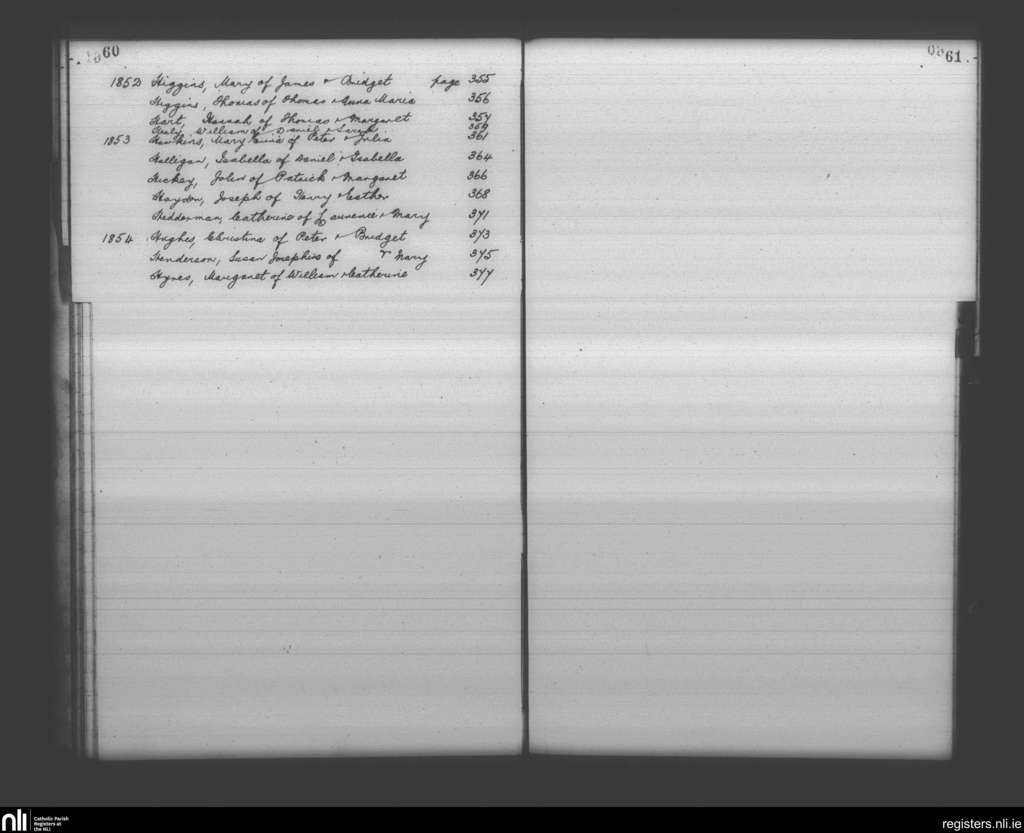 60
1852 Higgins, Mary of James & Bridget page 355
Higgins, Thomas of Thomas & Anna Maria 356
Hart, Hannah of Thomas & Margaret 357
William of Daniel & Sarah 359
1853 Hawkins, Mary Anne of Peter & Julia 361
Halligan, Isabella of Daniel & Isabella 364
Hickey, John of Patrick & Margaret 366
Haydon, Joseph of Henry & Esther 368
Hedderman, Catherine of Laurence & Mary 371
1854 Hughes, Christina of Peter & Bridget 373
Henderson, Susan Josephine of & Mary 375
Hynes, Margaret of William & Catherine 377
61
nli Catholic Parish Registers at the NLI
registers.nli.ie